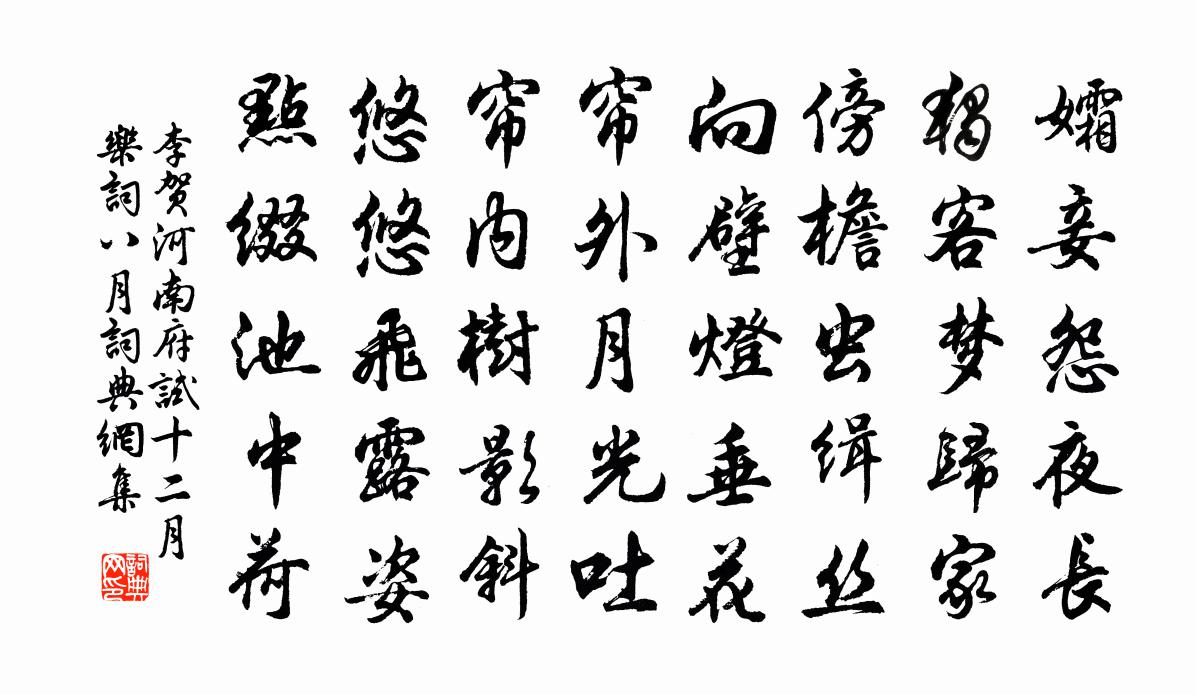 孀妾怨夜長
獨客梦歸家
傍檐虫緝丝
向壁燈垂花
帘外月光吐
帘内樹影斜
悠悠飛露姿
點缀池中荷
李贺河南府試十二月
樂詞八月詞典網集
詞典网印